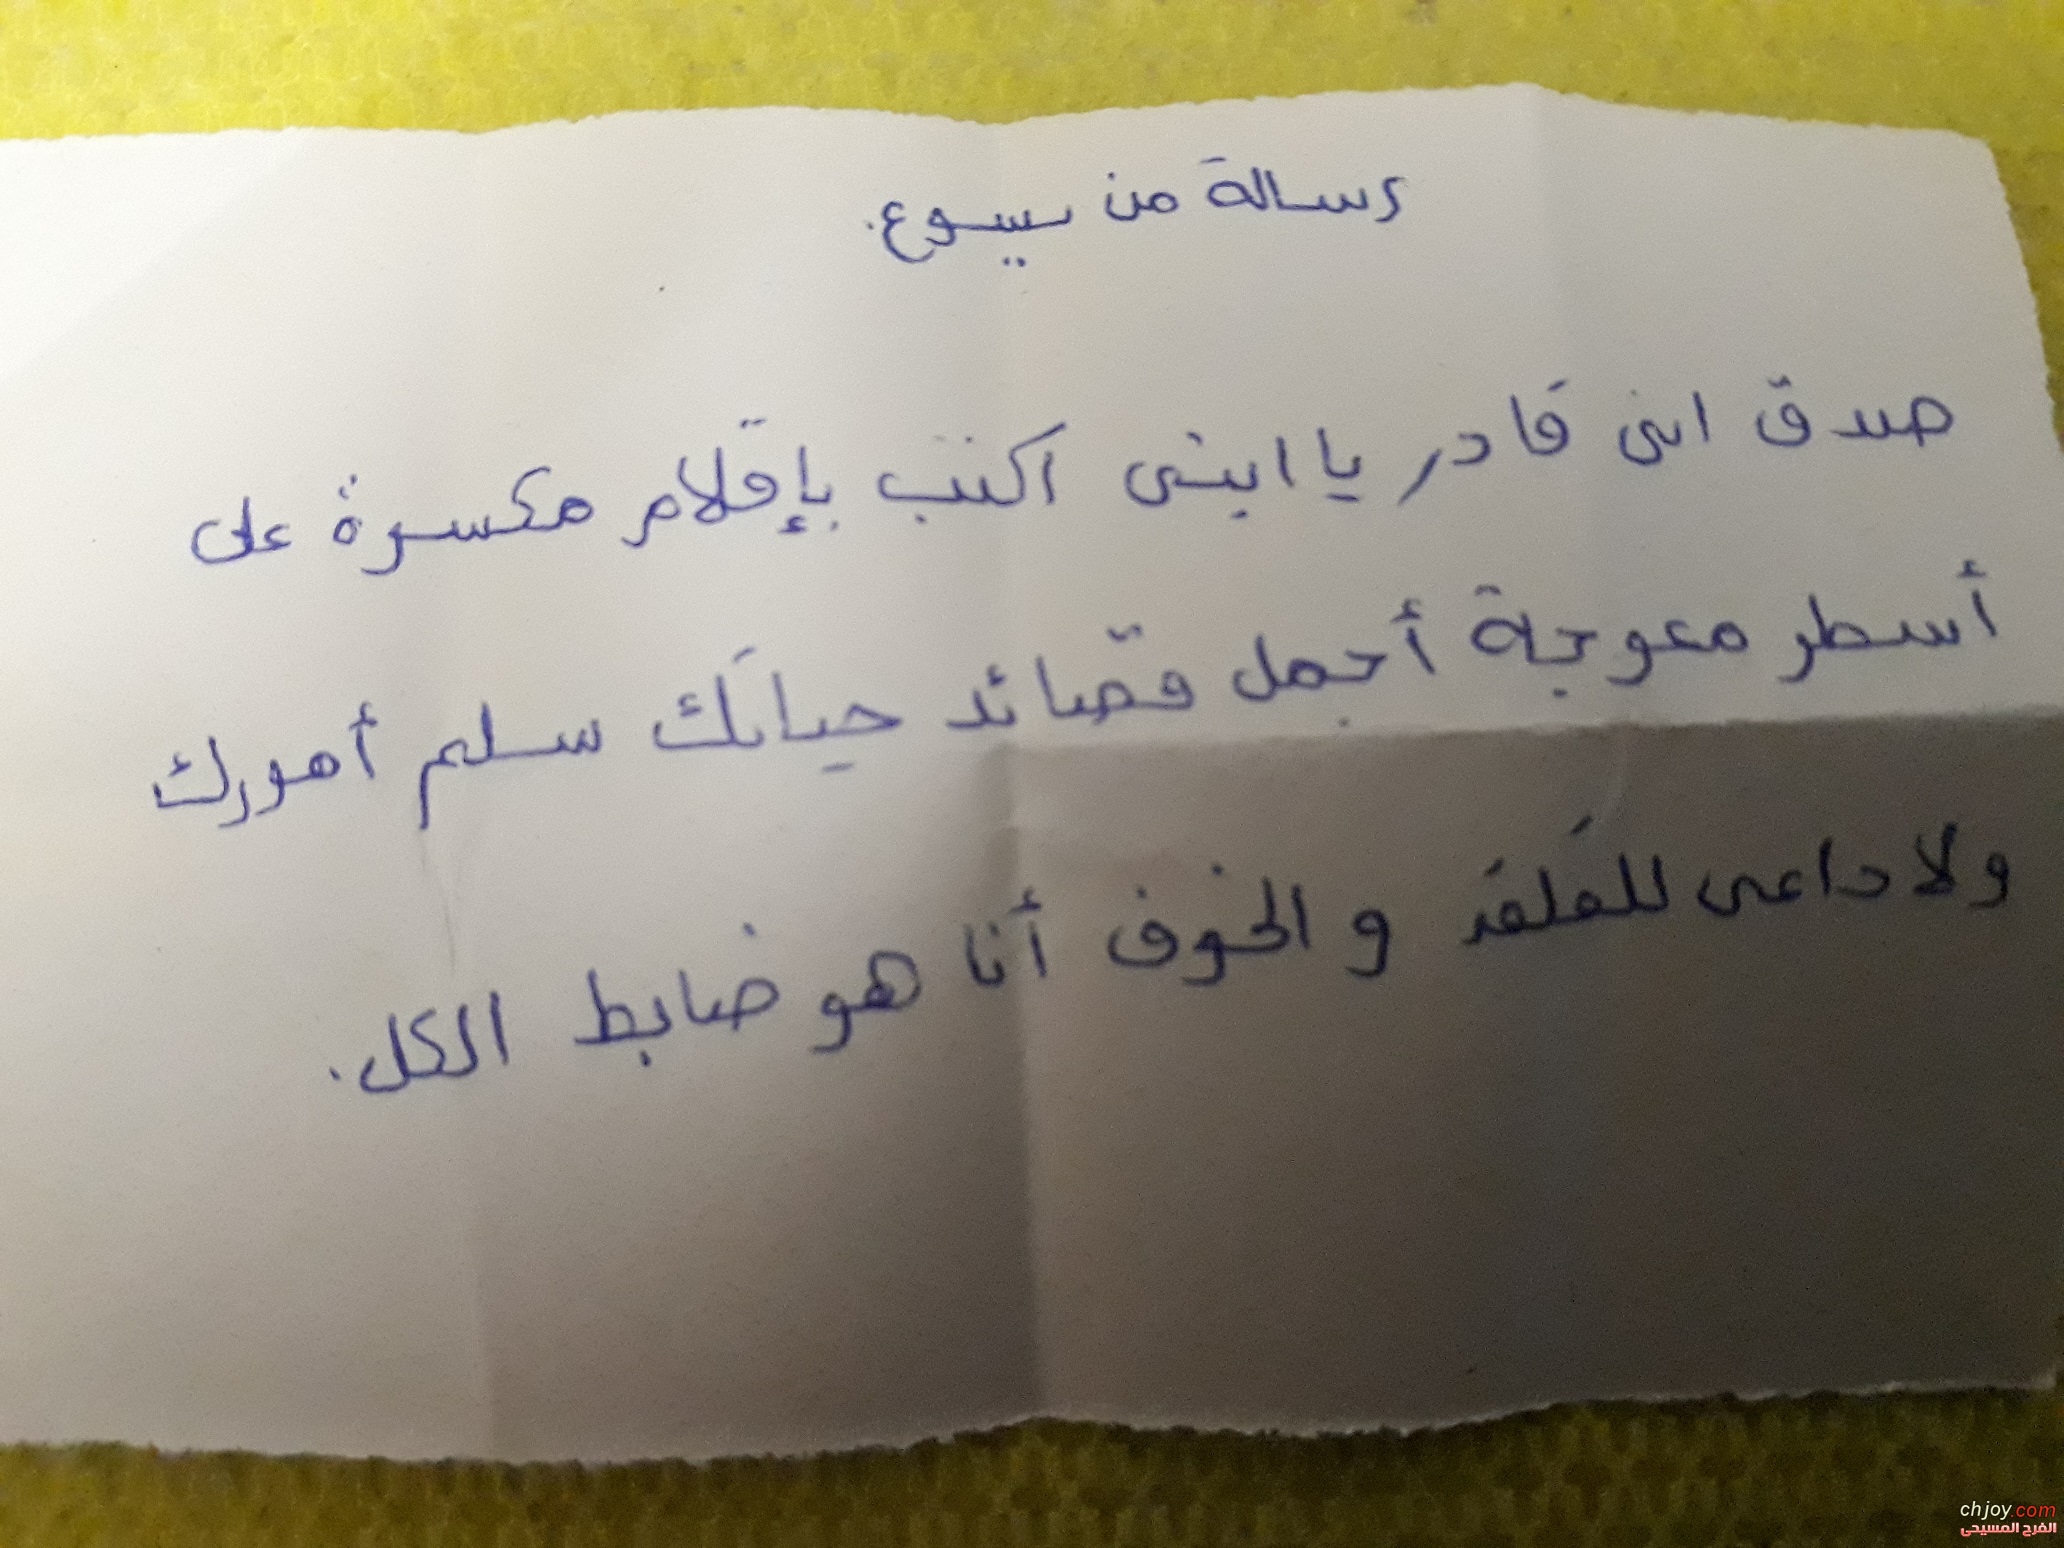 رسالة من يسوع.
صدق انى قادر يا ابنى اكتب بإقلام مكسرة على
أسطر معوجة أجمل قصائد حياتك سلم أمورك
ولا داعى للقلق و الخوف أنا هو ضابط الكل.
chjoy.com
الفرح المسيحى